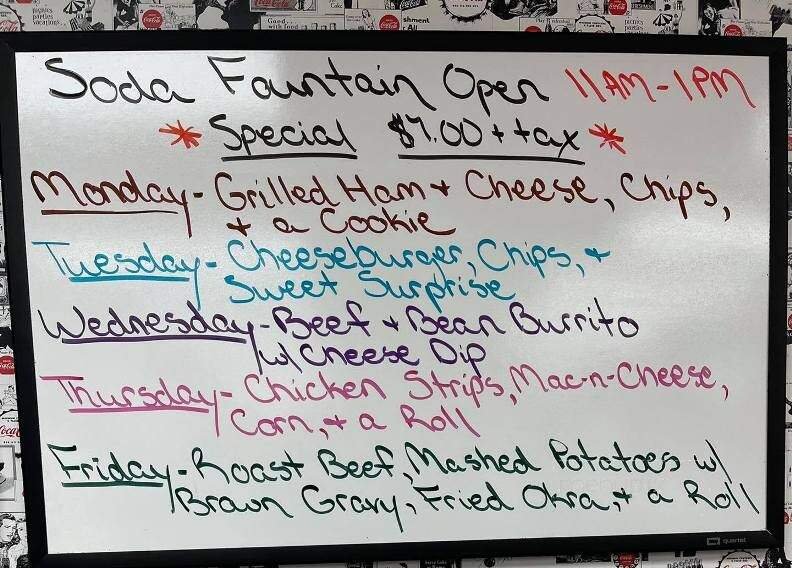 Soda Fountain Open 11AM-1PM
* Special $7.00 + tax *
Monday- Grilled Ham + Cheese, Chips,
+ a Cookie
Tuesday- Cheeseburger, Chips, +
Sweet Surprise
Wednesday- Beef + Bean Burrito
w/ Cheese Dip
Thursday- Chicken Strips, Mac-n-Cheese,
Corn, + a Roll
Friday- Roast Beef, Mashed Potatoes w/
Brown Gravy, Fried Okra, + a Roll
quartet